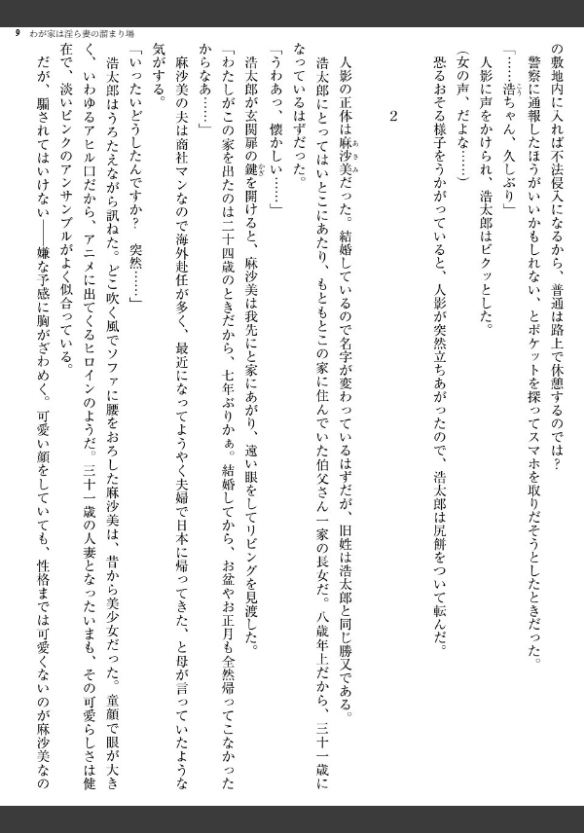 9 わが家は淫ら妻の溜まり場
の敷地内に入れば不法侵入になるから、普通は路上で休憩するのでは？
警察に通報したほうがいいかもしれない、とポケットを探ってスマホを取りだそうとしたときだった。
「……浩ちゃん、久しぶり」
人影に声をかけられ、浩太郎はビクッとした。
（女の声、だよな……）
恐るおそる様子をうかがっていると、人影が突然立ちあがったので、浩太郎は尻餅をついて転んだ。
2
人影の正体は麻沙美だった。結婚しているので名字が変わっているはずだが、旧姓は浩太郎と同じ勝又である。
浩太郎にとってはいとこにあたり、もともとこの家に住んでいた伯父さん一家の長女だ。八歳年上だから、三十一歳に
なっているはずだった。
「うわあっ、懐かしい……」
浩太郎が玄関扉の鍵を開けると、麻沙美は我先にと家にあがり、遠い眼をしてリビングを見渡した。
「わたしがこの家を出たのは二十四歳のときだから、七年ぶりかぁ。結婚してから、お盆やお正月も全然帰ってこなかった
からなあ……」
麻沙美の夫は商社マンなので海外赴任が多く、最近になってようやく夫婦で日本に帰ってきた、と母が言っていたような
気がする。
「いったいどうしたんですか？　突然……」
浩太郎はうろたえながら訊ねた。どこ吹く風でソファに腰をおろした麻沙美は、昔から美少女だった。童顔で眼が大き
く、いわゆるアヒル口だから、アニメに出てくるヒロインのようだ。三十一歳の人妻となったいまも、その可愛らしさは健
在で、淡いピンクのアンサンブルがよく似合っている。
だが、騙されてはいけない――嫌な予感に胸がざわめく。可愛い顔をしていても、性格までは可愛くないのが麻沙美なの